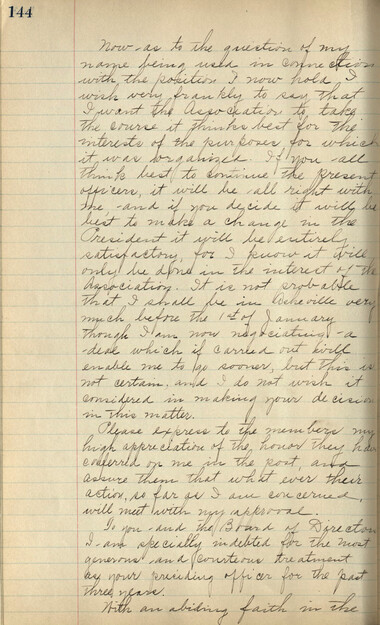 144
Now - as to the question of my
name being used in connection
with the position I now hold, I
wish very frankly to say that
I want the Association to take
the course it thinks best for the
interests of the purposes for which
it was organized. If you - all
think best to continue the present
officers, it will be - all right with
me, - and if you decide it will be
best to make a change in the
President it will be entirely
satisfactory, for I know it will
only be done in the interest of the
Association. It is not probable
that I shall be in Asheville very
much before the 1st of January
though I am now negotiating - a
- deal which if carried out will
enable me to go sooner, but this is
not certain and I do not wish it
considered in making your decision
in this matter.
Please express to the members my
high appreciation of the honor they have
conferred on me in the past, and
assure them that what ever their
action, so far as I am concerned,
will meet with my approval.
To you - and the Board of Directors
I - am specially indebted for the most
generous - and courteous treatment
as your presiding officer for the past
three years.
With an abiding faith in the